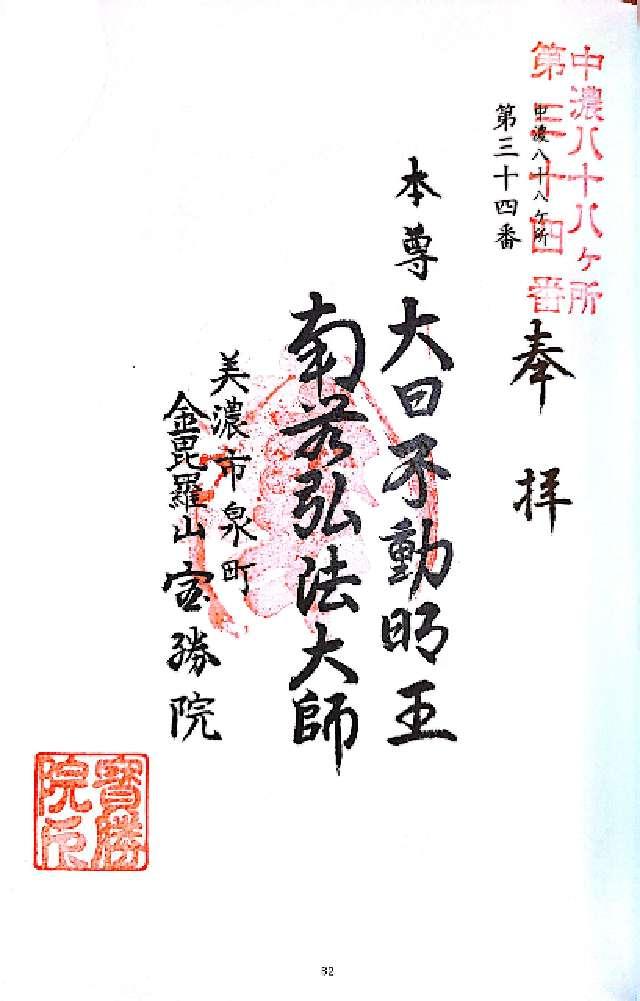 中濃八十八ヶ所
第三十四番
中濃八十八ヶ所
第三十四番
奉拝
本尊 大日不動明王
南无弘法大師
美濃市泉町
金毘羅山宝勝院
寳勝
院印
32